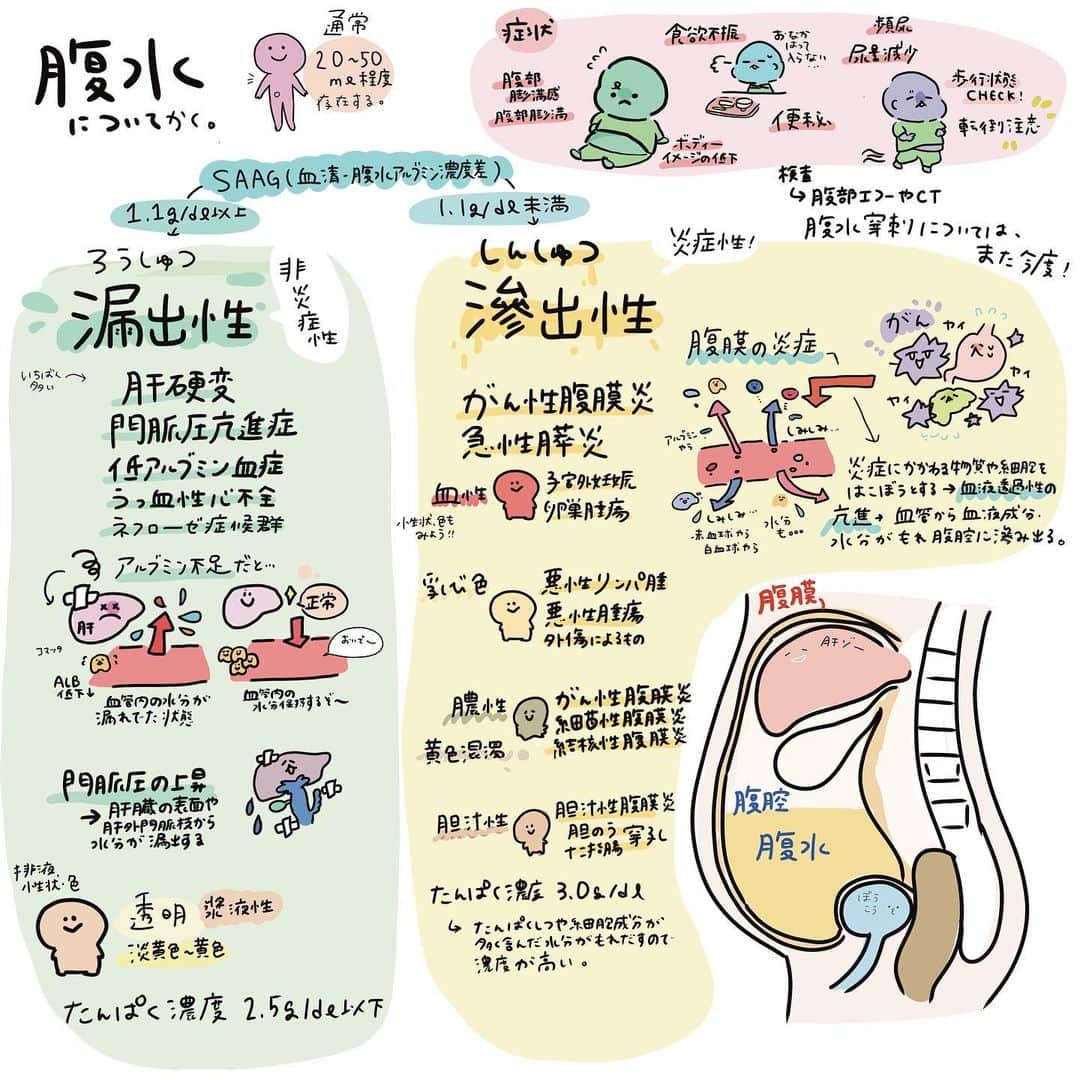 腹水
についてかく。
通常
20~50
ml程度
存在する。
症状
腹部
膨満感
腹部膨満
食欲不振
おなか
はって
入らない…
便秘
ボディー
イメージの低下
頻尿
尿量減少
歩行状態
CHECK!
転倒注意
検査
↳腹部エコーやCT
腹水穿刺については、
また今度!
SAAG(血清-腹水アルブミン濃度差)
1.1g/dl以上
1.1g/dl未満
ろうしゅつ
漏出性
非炎症性
いちばん
多い
肝硬変
門脈圧亢進症
低アルブミン血症
うっ血性心不全
ネフローゼ症候群
アルブミン不足だと…
肝
正常
コマッタ
おいで~
ALB
低下↓
血管内の水分が
漏れてた状態
血管内の
水分保持するぞ~
門脈圧の上昇
→肝臓の表面や
肝外門脈枝から
水分が漏出する
排液
性状・色
透明
漿液性
淡黄色~黄色
たんぱく濃度 2.5g/dl以下
しんしゅつ
滲出性
炎症性!
がん性腹膜炎
急性膵炎
血性
子宮外妊娠
卵巣腫瘍
性状、色も
みよう!!
乳び色
悪性リンパ腫
悪性腫瘍
外傷によるもの
膿性
黄色混濁
がん性腹膜炎
細菌性腹膜炎
結核性腹膜炎
胆汁性
胆汁性腹膜炎
胆のう
十二指腸
穿孔
たんぱく濃度 3.0g/dl
↳たんぱくしつや細胞成分が
多く含んだ水分がもれだすので
濃度が高い。
腹膜の炎症
がん
ヤィ
ヤィ
ヤィ
アルブミン
やら
しみしみ…
しみしみ…
赤血球やら
白血球やら
水分
も…
炎症にかかわる物質や細胞を
はこぼうとする→血液透過性の
亢進→血管から血液成分・
水分がもれ腹腔に滲み出る。
腹膜
肝ゾー
腹腔
腹水
ぼう
こう